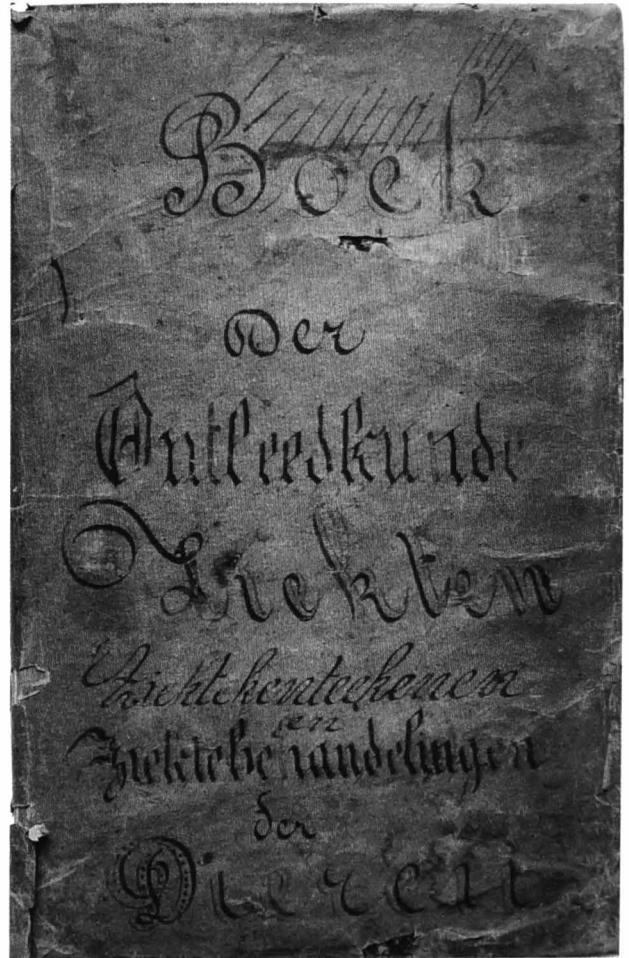 Boek
Der
Ontleedkunde
Ziekten
Ziektekenteekenen
en
Ziektebehandelingen
der
Dieren